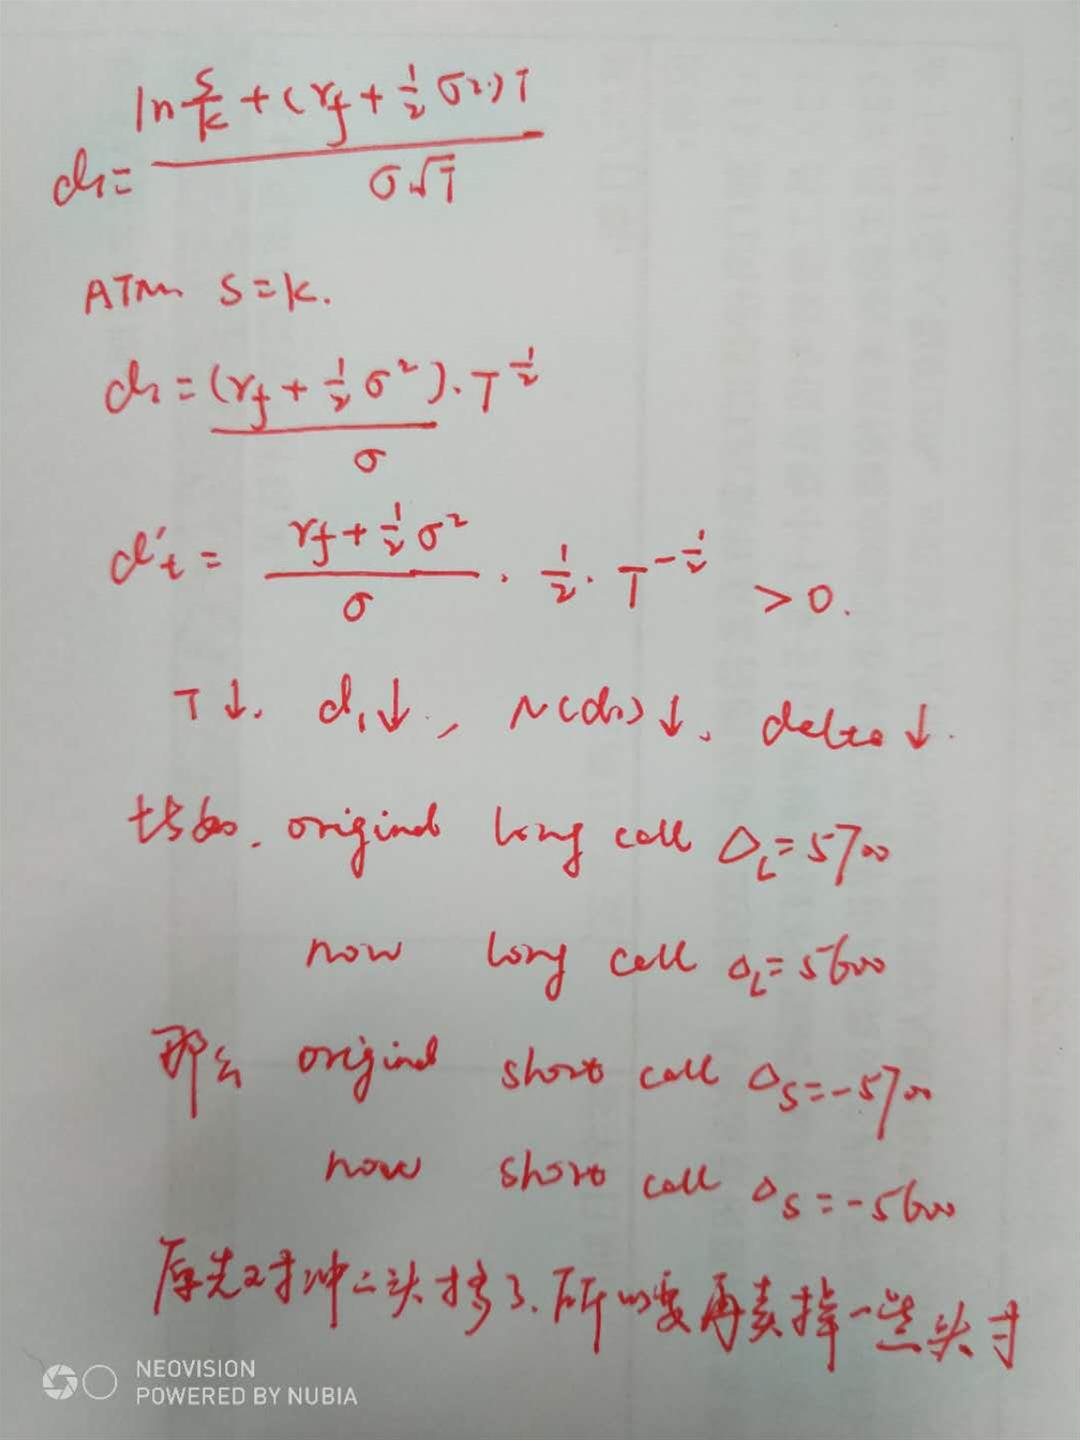 d₁ = (ln S/K + (rf + ½ σ²)T) / (σ√T)
ATM S=K.
d₁ = (rf + ½ σ²)/σ · T^½
d't = (rf + ½ σ²)/σ · ½ · T^-½ > 0.
T↓. d₁↓, N(d₁)↓. delta↓.
比如. original long call Δ_L=5700
now long call Δ_L=5600
那么 original short call Δ_S=-5700
now short call Δ_S=-5600
原先对冲的头寸多了.所以要再卖掉一些头寸
NEOVISION
POWERED BY NUBIA